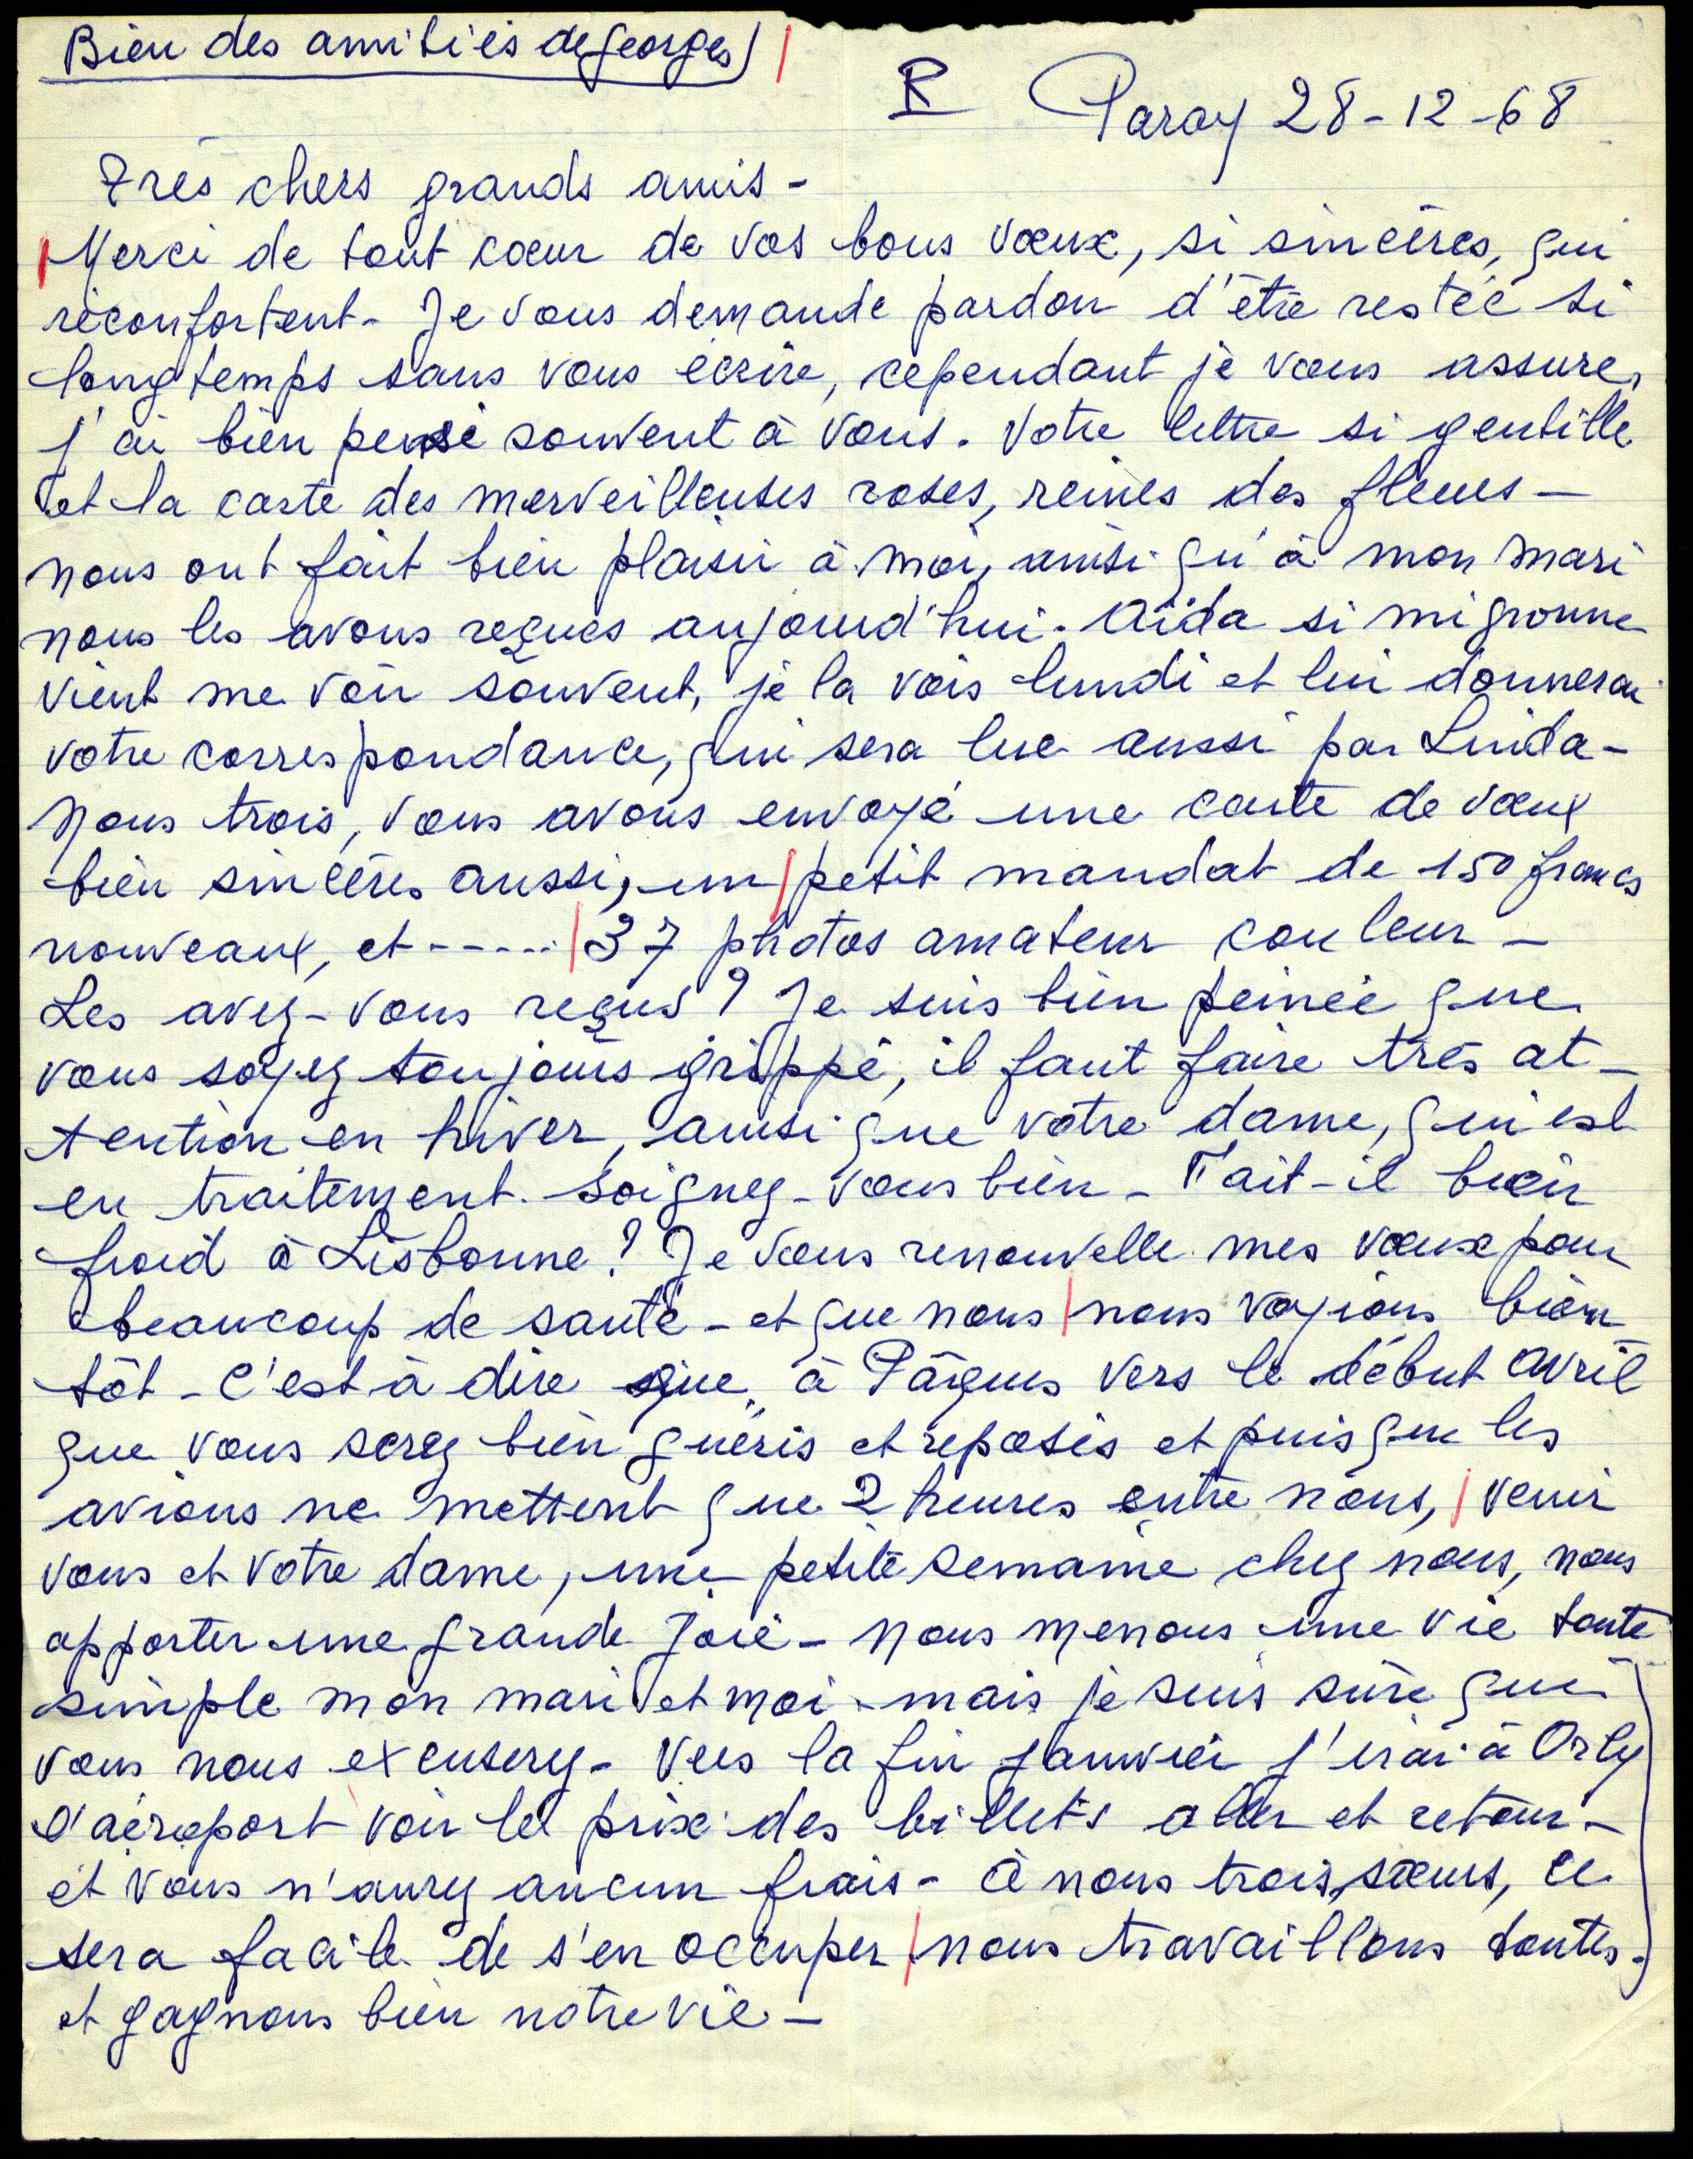 Bien des amitiés de Georges
R Paray 28-12-68
Très chers grands amis -
Merci de tout cœur de vos bons vœux, si sincères, qui
réconfortent - Je vous demande pardon d'être restée si
longtemps sans vous écrire, cependant je vous assure,
j'ai bien pensé souvent à vous. Votre lettre si gentille
et la carte des merveilleuses roses, reines des fleurs -
nous ont fait bien plaisir à moi, ainsi qu'à mon mari
nous les avons reçues aujourd'hui. Aïda si mignonne
vient me voir souvent, je la vois lundi et lui donnerai
votre correspondance, qui sera lue aussi par Linda -
Nous trois, vous avons envoyé une carte de vœux
bien sincères aussi, un petit mandat de 150 francs
nouveaux, et ------ 37 photos amateur couleur -
Les avez-vous reçus ? Je suis bien peinée que
vous soyez toujours grippé, il faut faire très at-
tention en hiver, ainsi que votre dame, qui est
en traitement. Soignez-vous bien - Fait-il bien
froid à Lisbonne ? Je vous renouvelle mes vœux pour
beaucoup de santé - et que nous nous voyions bien
tôt - C'est à dire que, à Pâques vers le début avril
que vous serez bien guéris et reposés et puisque les
avions ne mettent que 2 heures entre nous, venir
vous et votre dame, une petite semaine chez nous, nous
apporter une grande joie - Nous menons une vie toute
simple mon mari et moi - mais je suis sûre que
vous nous excuserez - Vers la fin janvier j'irai à Orly
l'aéroport voir le prix des billets aller et retour -
et vous n'aurez aucun frais - à nous trois, sœurs, ce
sera facile de s'en occuper nous travaillons toutes -
et gagnons bien notre vie -